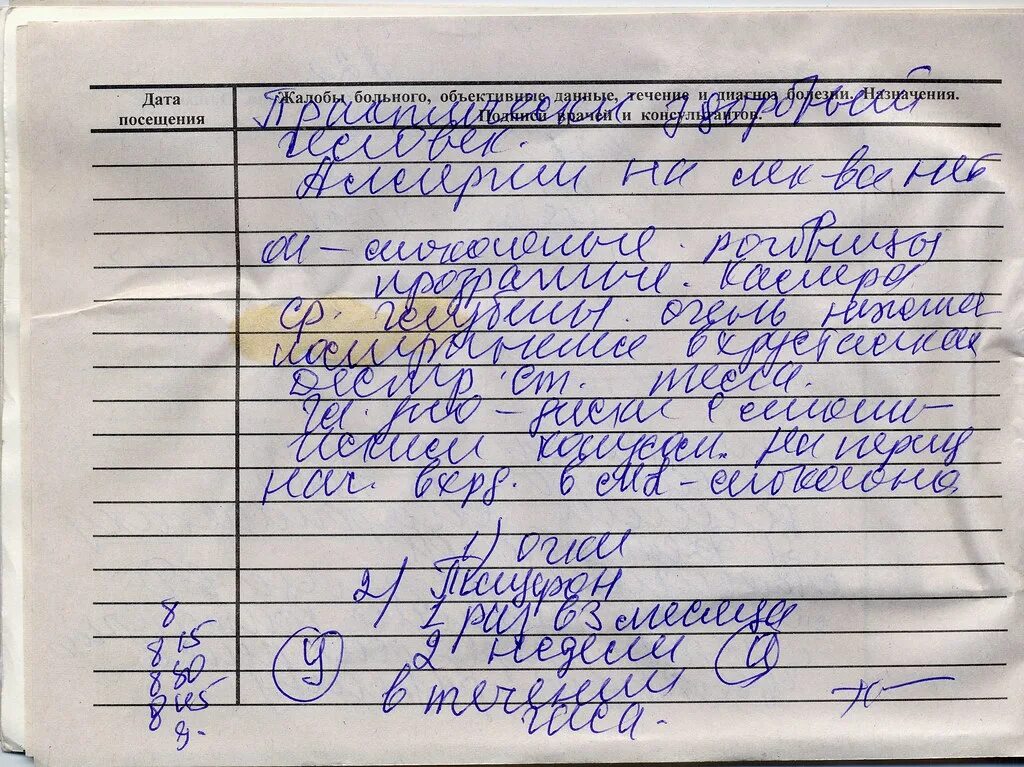 Дата
посещения
Жалобы больного, объективные данные, течение и диагноз болезни. Назначения.
Подписи врачей и консультантов.
Практически здоровый
человек.
Аллергии на лек-ва нет
спокойные. роговицы
прозрачные. Камера
ср. глубины. очень нежная
в хрусталиках
ст. тела.
Гл. дно - диски с
конусом. На периф
нач. в - спокойно
1) очки
2) Тауфон
1 раз в 3 месяца
2 недели
в течении
часа.
8
8 15
8 30
8 45
9.
У